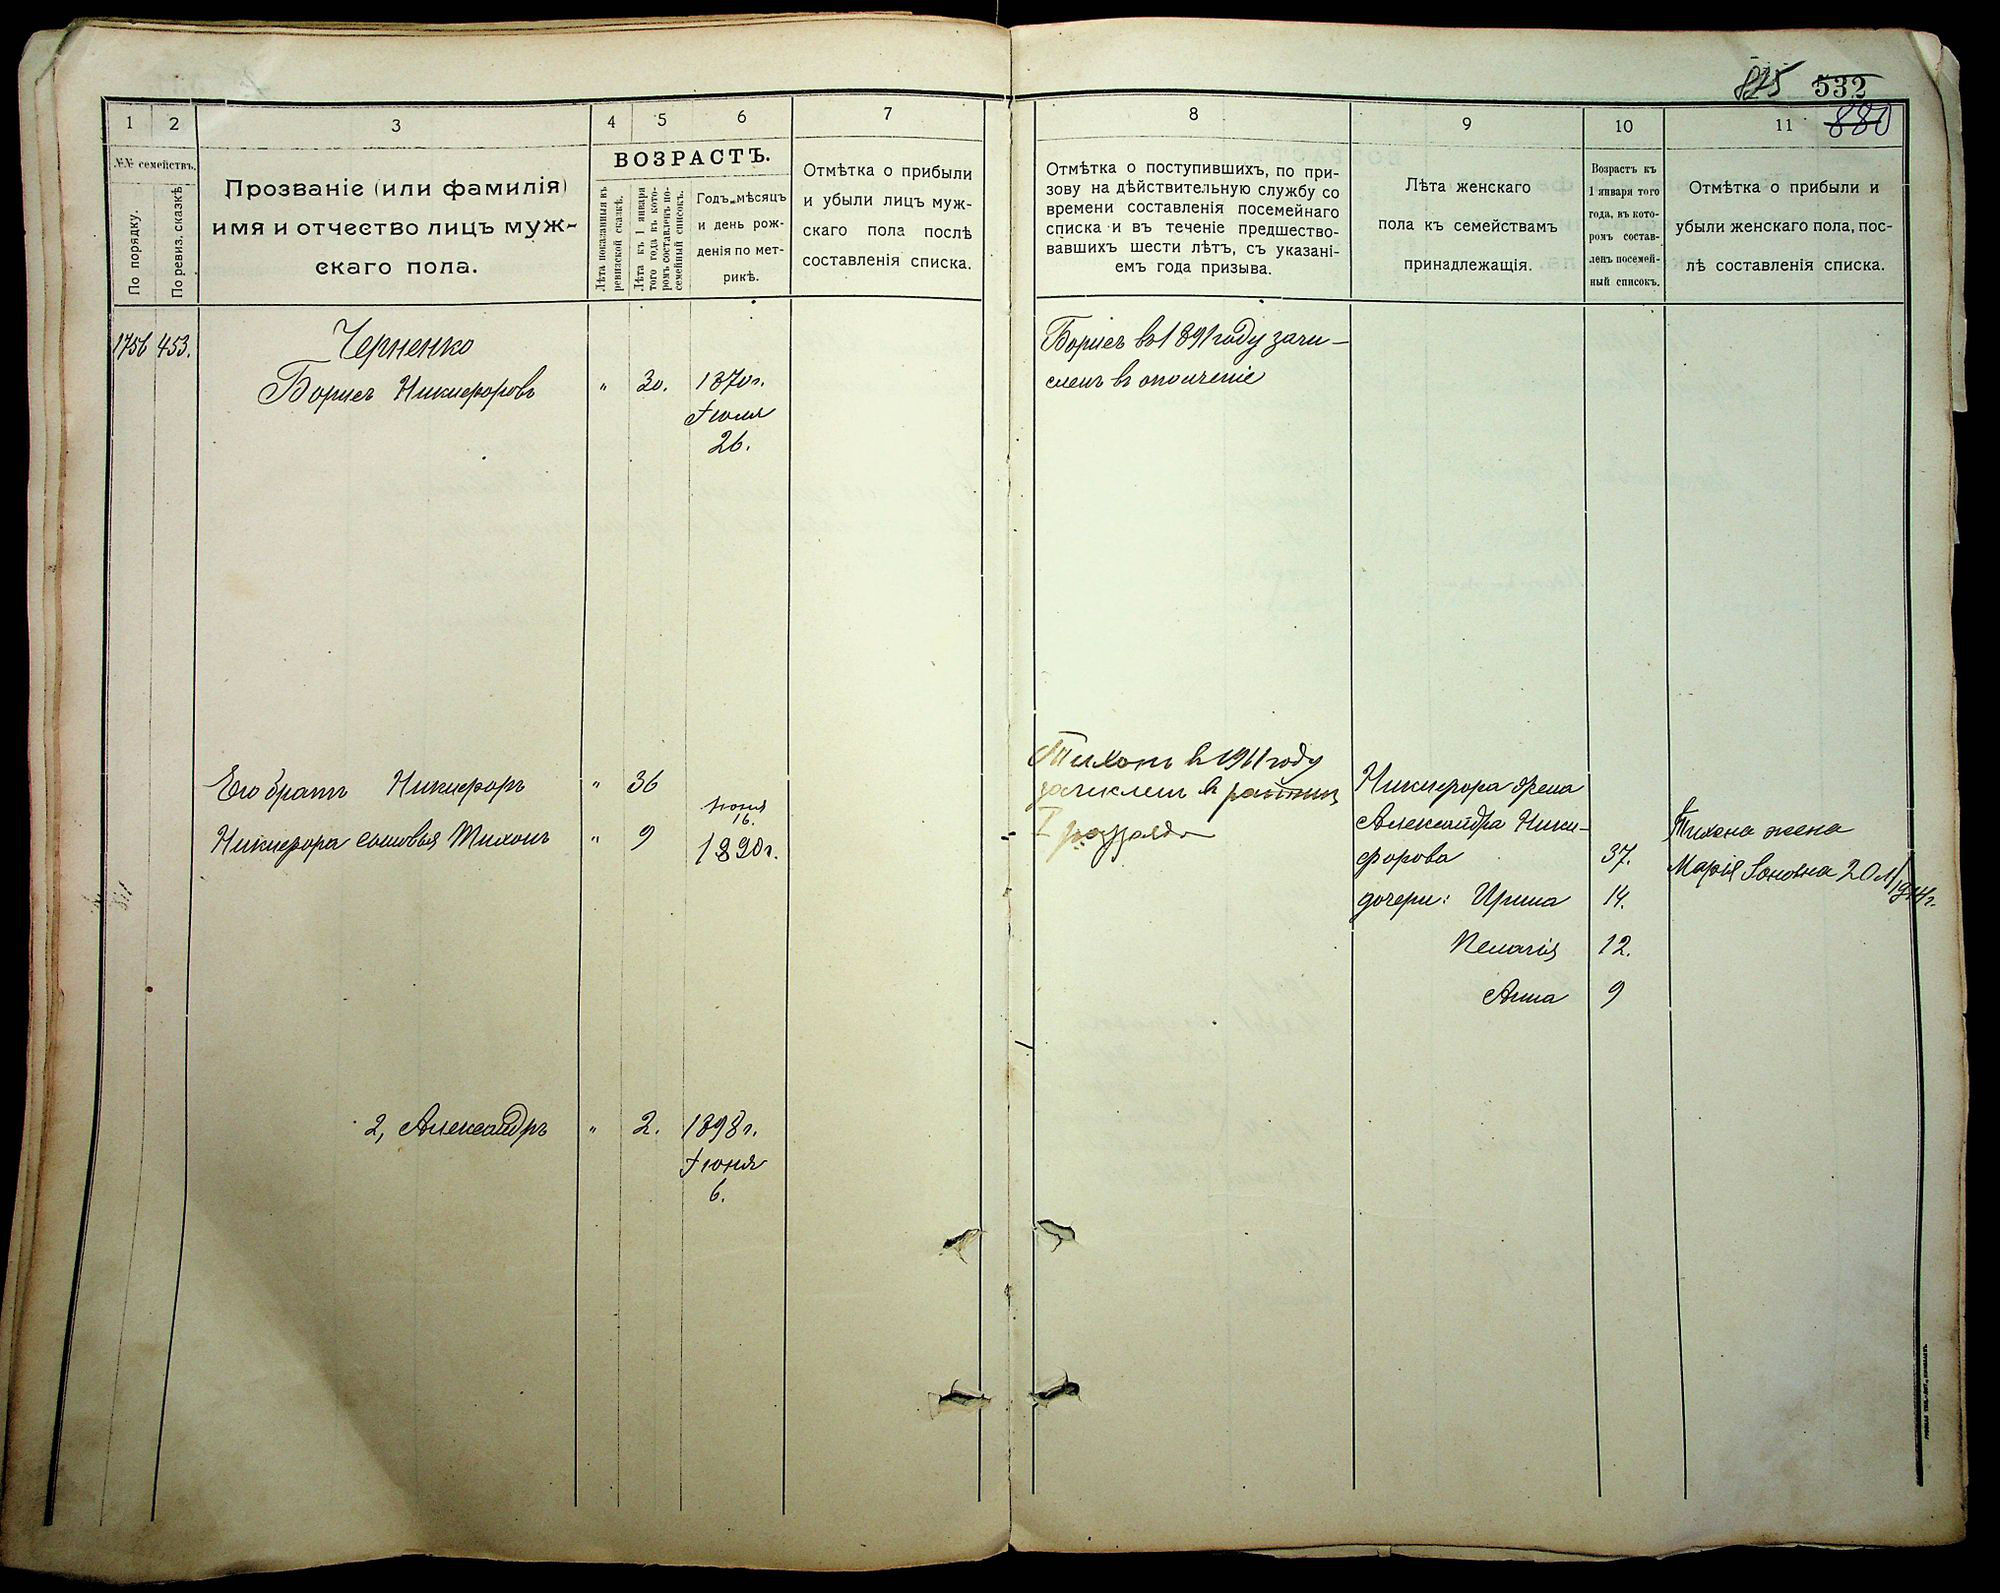 825 532
880
1 2 3 4 5 6 7
№№ семействъ.
По порядку.
По ревиз. сказкѣ
Прозваніе (или фамилія)
имя и отчество лицъ муж-
скаго пола.
ВОЗРАСТЪ.
Лѣта показанныя въ
ревизской сказкѣ.
Лѣта къ 1 января
того года въ кото-
ромъ составленъ по-
семейный списокъ.
Годъ, мѣсяцъ
и день рож-
денія по мет-
рикѣ.
Отмѣтка о прибыли
и убыли лицъ муж-
скаго пола послѣ
составленія списка.
1756 453. Черненко
Борисъ Никифоровъ „ 30. 1870 г.
Іюля
26.
Его братъ Никифоръ „ 36
Іюня
16.
Никифора сыновья Тихонъ „ 9 1890 г.
2, Александръ „ 2. 1898 г.
Іюня
6.
8 9 10 11
Отмѣтка о поступившихъ, по при-
зову на дѣйствительную службу со
времени составленія посемейнаго
списка и въ теченіе предшество-
вавшихъ шести лѣтъ, съ указані-
емъ года призыва.
Лѣта женскаго
пола къ семействамъ
принадлежащія.
Возрастъ къ
1 января того
года, въ кото-
ромъ состав-
ленъ посемей-
ный списокъ.
Отмѣтка о прибыли и
убыли женскаго пола, пос-
лѣ составленія списка.
Борисъ въ 1891 году зачи-
сленъ въ ополченіе
Тихонъ в 1911 году
зачислен в ратники
I разряда
Никифора жена
Александра Ники-
форова 37.
дочери: Ирина 14.
Пелагія 12.
Анна 9
Тихона жена
Марія Іоновна 20 л/1914 г.